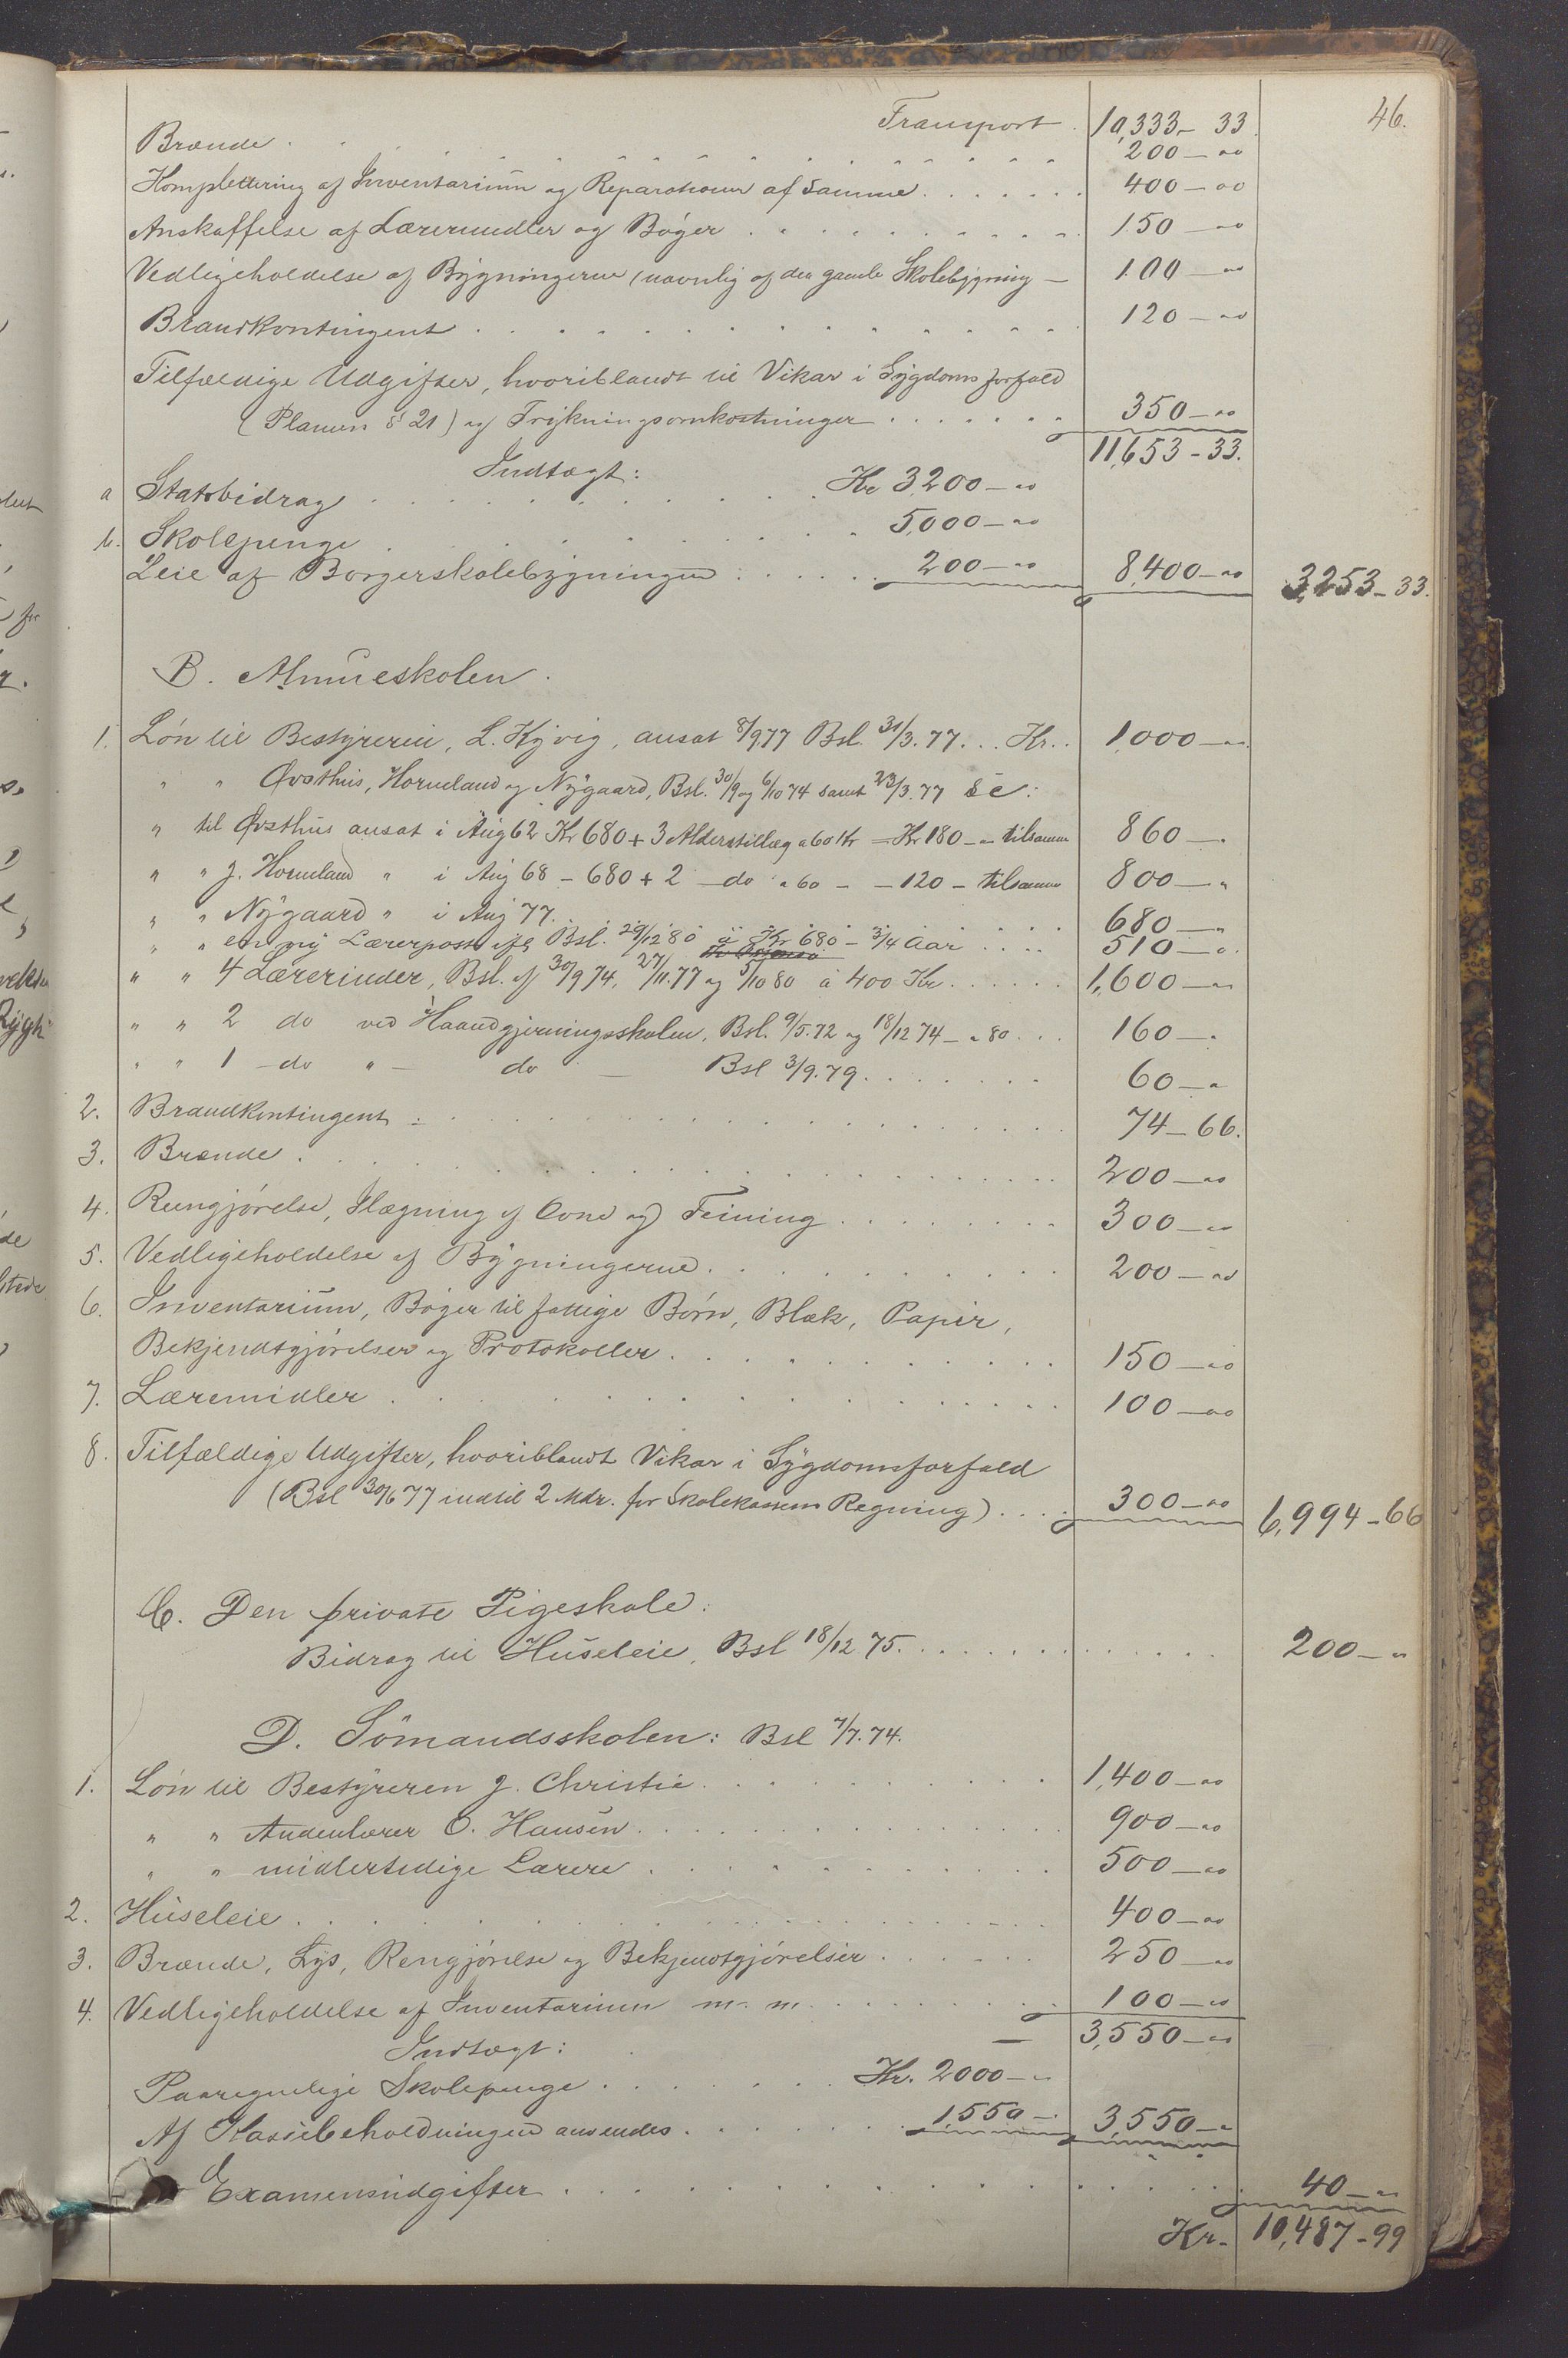 46.
Transport 10,333 - 33
Brænde 200 - "
Komplettering af Inventarium og Reparationer af Samme 400 - "
Anskaffelse af Lærermidler og Bøger 150 - "
Vedligeholdelse af Bygningerne (navnlig af den gamle Skolebygning - 100 - "
Brandkontingent 120 - "
Tilfældige Udgifter, hvoriblandt til Vikar i Sygdomsforfald
(Planen § 21) og Trykningsomkostninger 350 - "
11,653 - 33.
Indtægt:
a Statsbidrag Kr 3,200 - "
b. Skolepenge 5,000 - "
Leie af Borgerskolebygningen 200 - " 8,400 - " 3,253 - 33.
B. Almueskolen.
1. Løn til Bestyreren, L. Kyvig, ansat 8/9 77 Bsl. 31/3. 77... Kr.. 1,000 - "
" " Øvsthus, Horneland og Nygaard, Bsl. 30/9 og 6/10 74 samt 23/3. 77
" til Øvsthus ansat i Aug 62 Kr 680 + 3 Alderstillæg a 60 Kr = Kr 180 - " tilsamm 860 - "
" " J. Horneland " i Aug 68 - 680 + 2 - do a 60 - - 120 - tilsamm 800 - "
" " Nygaard " i Aug 77. 680 - "
" " en ny Lærerpost iflg Bsl. 29/12 80 à Kr 680 - 3/4 Aar 510 - "
" " 4 Lærerinder, Bsl. af 30/9 74, 27/11. 77 og 5/10 80 à 400 Kr. 1,600 - "
" " 2 do ved Haandgjerningsskolen, Bsl. 9/5. 72 og 18/12 74 - a 80 160 - "
" " 1 - do " - do - Bsl 3/9. 79. 60 - "
2. Brandkontingent 74 - 66.
3. Brænde 200 - "
4. Rengjørelse, Ilægning af Ovne og Feining 300 - "
5. Vedligeholdelse af Bygningerne 200 - "
6. Inventarium, Bøger til fattige Børn, Blæk, Papir,
Bekjendtgjørelser og Protokoller 150 - "
7. Læremidler 100 - "
8. Tilfældige Udgifter, hvoriblandt Vikar i Sygdomsforfald
(Bsl 30/6 77 indtil 2 Mdr. for Skolekassens Regning) 300 - " 6,994 - 66
C. Den private Pigeskole:
Bidrag til Huseleie, Bsl 18/12 75. 200 - "
D. Sömandsskolen: Bsl 7/7. 74.
1. Løn til Bestyreren J. Christie 1,400 - "
" " Andenlærer O. Hansen 900 - "
" " midlertidige Lærere 500 - "
2. Huseleie 400 - "
3. Brænde, Lys, Rengjørelse og Bekjendtgjørelser 250 - "
4. Vedligeholdelse af Inventarium m. m. 100 - "
- 3,550 - "
Indtægt:
Paaregnelige Skolepenge Kr. 2000 - "
Af Kassebeholdningen anvendes 1,550 - 3,550 - "
Examensudgifter 40 - "
Kr. 10,487 - 99